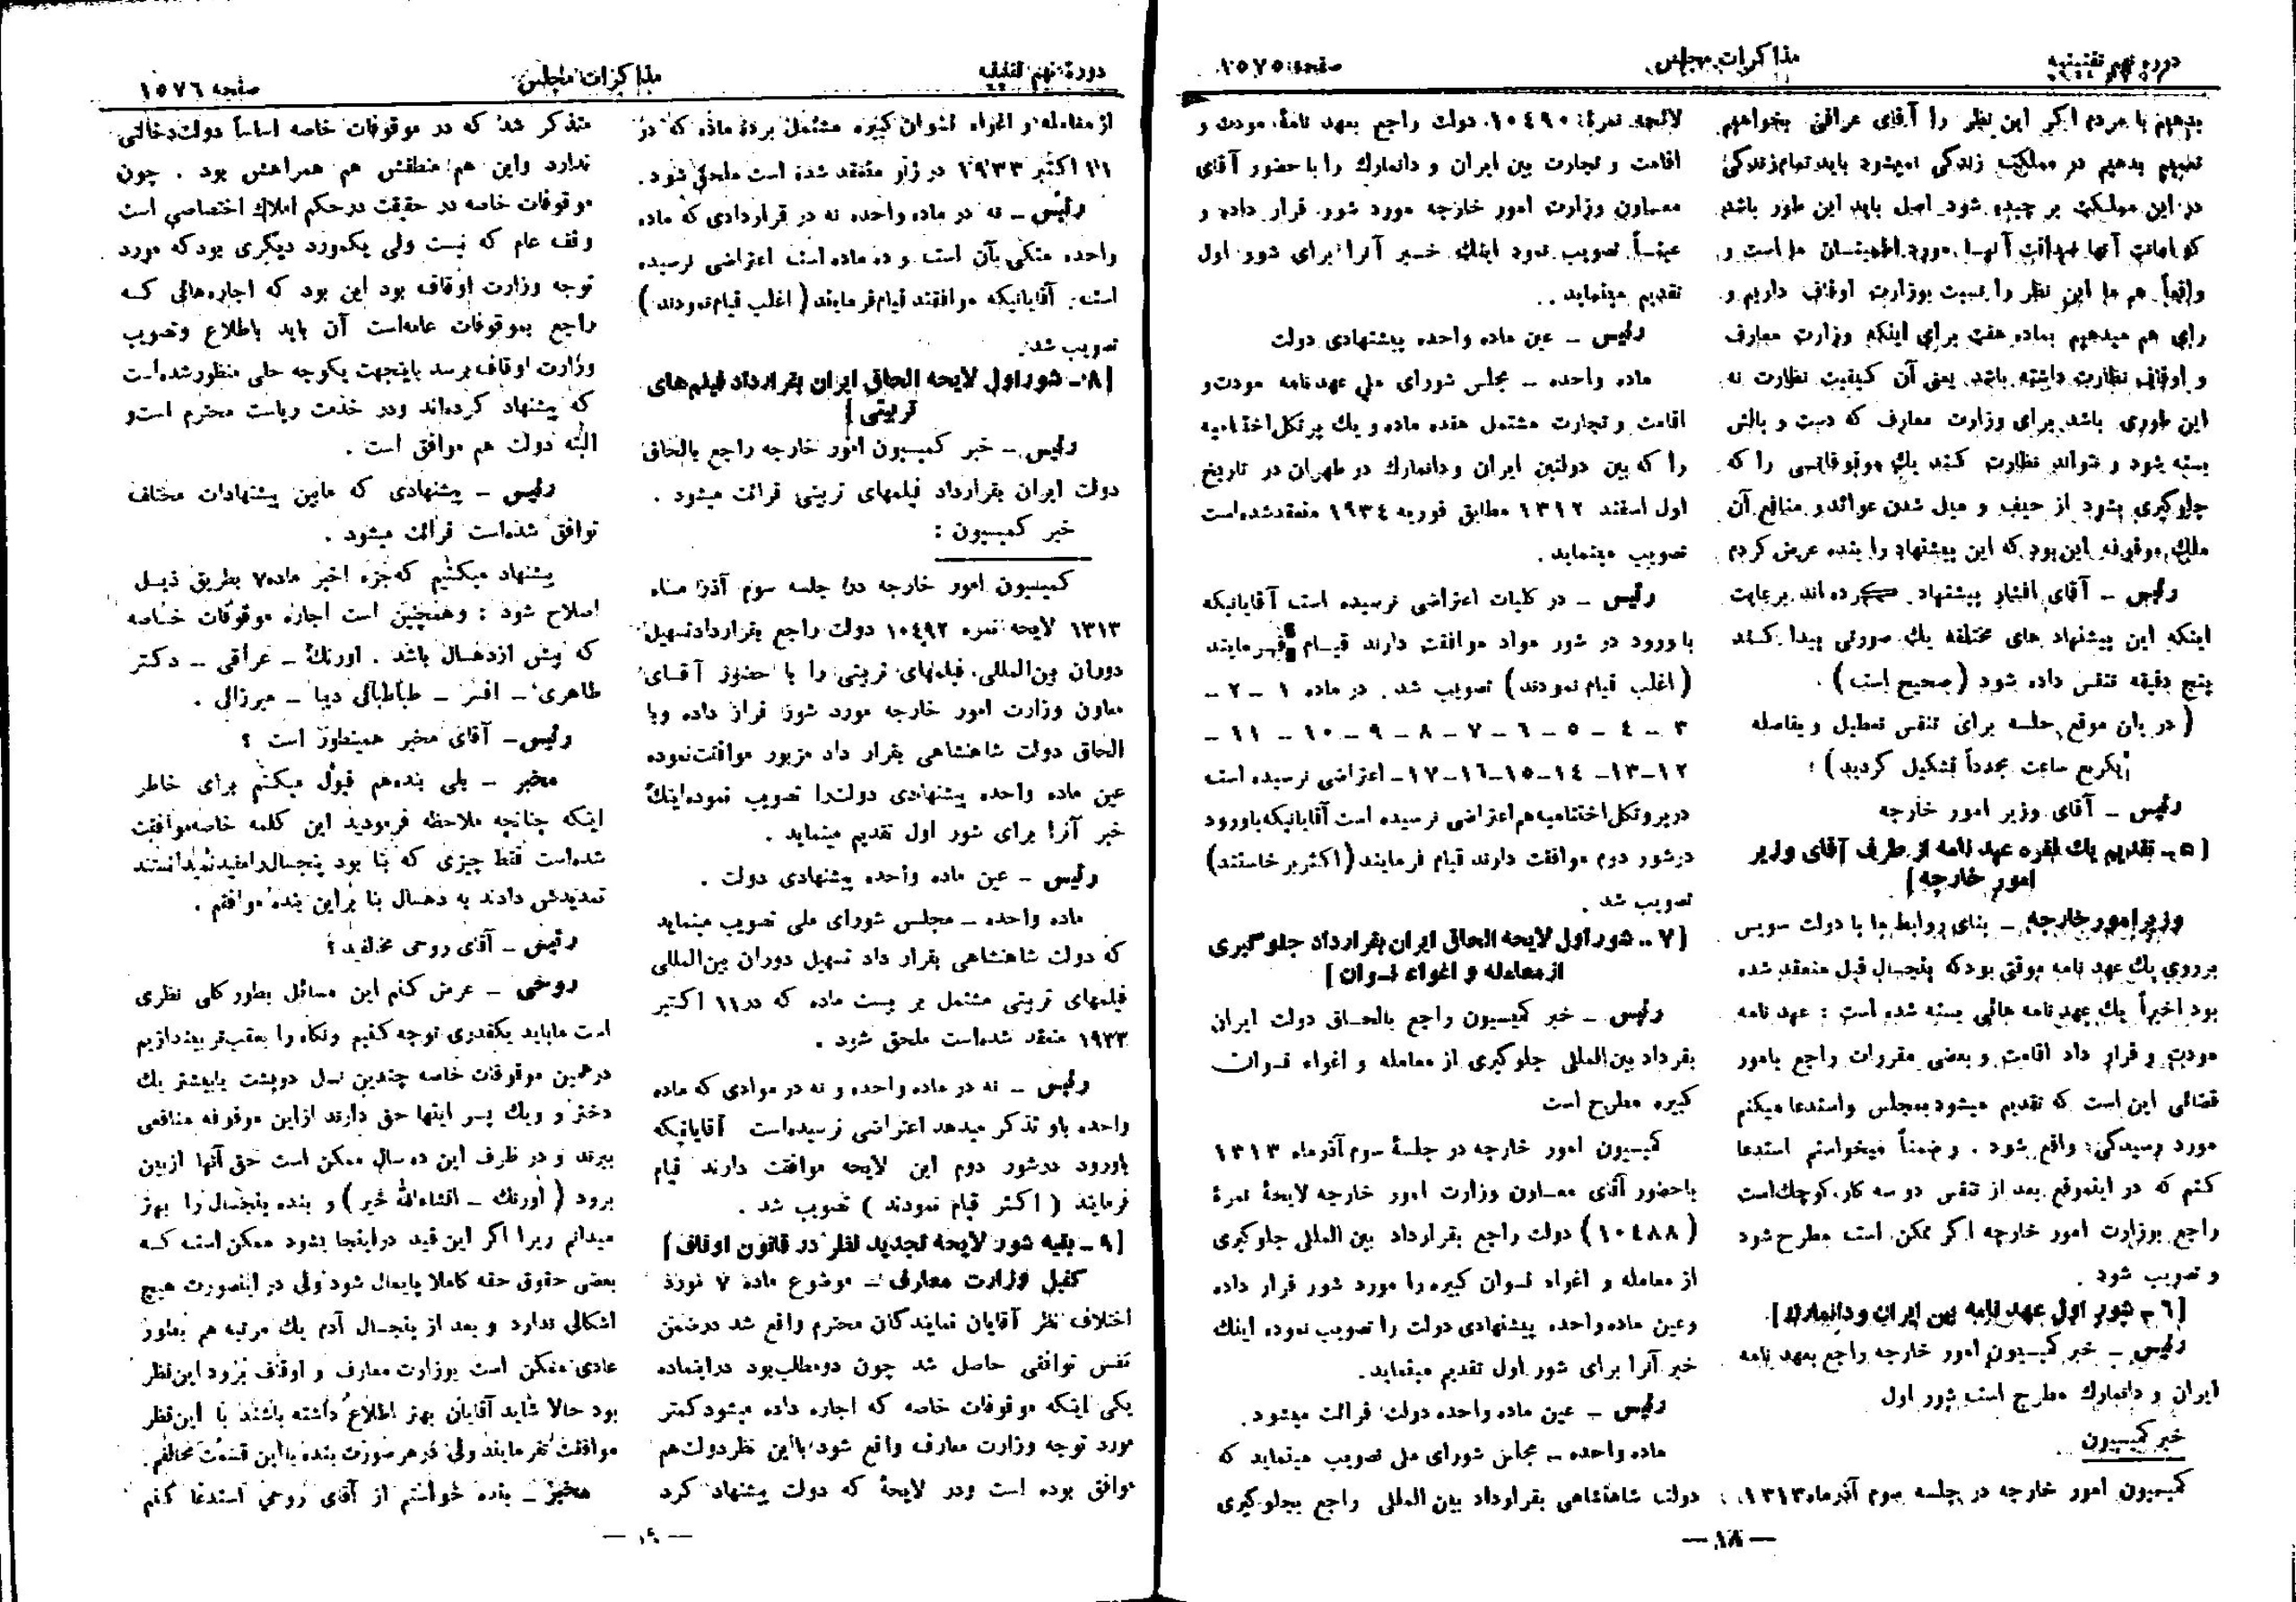 دوره نهم تقنینیه
مذاکرات مجلس
صفحه ۱۵۷۵
بدهیم با مردم اگر این نظر را آقای عراقی بخواهیم
تعمیم بدهیم در مملکت زندگی نمیشود باید تمام زندگی
در این مملکت بر چیده شود اصل باید این طور باشد
که امانت آنها صداقت آنها مورد اطمینان ما است و
واقعاً هم ما این نظر را نسبت بوزارت اوقاف داریم و
رأی هم میدهیم بماده هفت برای اینکه وزارت معارف
و اوقاف نظارت داشته باشد یعنی آن کیفیت نظارت نه
این طوری باشد برای وزارت معارف که دست و بالش
بسته بشود و نتواند نظارت کند یك موقوفاتی را که
جلوگیری بشود از حیف و میل شدن عوائد و منافع آن
ملك موقوفه این بود که این پیشنهاد را بنده عرض کردم
رئیس – آقای افشار پیشنهاد کرده اند برعایت
اینکه این پیشنهاد های مختلفه یك صورتی پیدا کند
پنج دقیقه تنفس داده شود (صحیح است) .
( در این موقع جلسه برای تنفس تعطیل و بفاصله
یکربع ساعت مجدداً تشکیل گردید )
رئیس – آقای وزیر امور خارجه
[ ۵ – تقدیم یك فقره عهد نامه از طرف آقای وزیر
امور خارجه ]
وزیر امور خارجه – بنای روابط ما با دولت سویس
برروی یك عهد نامه موقتی بود که پنجسال قبل منعقد شده
بود اخیراً یك عهد نامه هائی بسته شده است : عهد نامه
مودت و قرار داد اقامت و بعضی مقررات راجع بامور
قضائی این است که تقدیم میشود بمجلس و استدعا میکنم
مورد رسیدگی واقع شود . و ضمناً میخواستم استدعا
کنم که در اینموقع بعد از تنفس دو سه کار کوچك است
راجع بوزارت امور خارجه اگر ممکن است مطرح شود
و تصویب شود .
[ ۶ – شور اول عهد نامه بین ایران و دانمارك ]
رئیس – خبر کمیسیون امور خارجه راجع بعهد نامه
ایران و دانمارك مطرح است شور اول
خبر کمیسیون
کمیسیون امور خارجه در جلسه سوم آذرماه ۱۳۱۳
لایحه نمرهٔ ۱۰۴۹۰ دولت راجع بعهد نامهٔ مودت و
اقامت و تجارت بین ایران و دانمارك را با حضور آقای
معاون وزارت امور خارجه مورد شور قرار داده و
عیناً تصویب نمود اینك خبر آنرا برای شور اول
تقدیم مینماید .
رئیس – عین ماده واحده پیشنهادی دولت
ماده واحده – مجلس شورای ملی عهد نامه مودت و
اقامت و تجارت مشتمل هفده ماده و یك پرتکل اختتامیه
را که بین دولتین ایران و دانمارك در طهران در تاریخ
اول اسفند ۱۳۱۲ مطابق فوریه ۱۹۳۴ منعقد شده است
تصویب مینماید .
رئیس – در کلیات اعتراضی نرسیده است آقایانیکه
با ورود در شور مواد موافقت دارند قیام فرمایند
(اغلب قیام نمودند) تصویب شد . در ماده ۱ – ۲ –
۳ – ۴ – ۵ – ۶ – ۷ – ۸ – ۹ – ۱۰ – ۱۱ –
۱۲–۱۳– ۱۴–۱۵–۱۶–۱۷– اعتراضی نرسیده است
در پروتکل اختتامیه هم اعتراضی نرسیده است آقایانیکه با ورود
در شور دوم موافقت دارند قیام فرمایند (اکثر برخاستند)
تصویب شد .
[ ۷ – شور اول لایحه الحاق ایران بقرارداد جلوگیری
از معامله و اغواء نسوان ]
رئیس – خبر کمیسیون راجع بالحاق دولت ایران
بقرداد بین‌المللی جلوگیری از معامله و اغواء نسوان
کبیره مطرح است
کمیسیون امور خارجه در جلسهٔ سوم آذرماه ۱۳۱۳
باحضور آقای معاون وزارت امور خارجه لایحهٔ نمرهٔ
(۱۰۴۸۸) دولت راجع بقرارداد بین المللی جلوگیری
از معامله و اغواء نسوان کبیره را مورد شور قرار داده
وعین ماده واحده پیشنهادی دولت را تصویب نموده اینك
خبر آنرا برای شور اول تقدیم مینماید.
رئیس – عین ماده واحده دولت قرائت میشود.
ماده واحده – مجلس شورای ملی تصویب مینماید که
دولت شاهنشاهی بقرارداد بین المللی راجع بجلوگیری
— ۱۸ —
دوره نهم تقنینیه
مذاکرات مجلس
صفحه ۱۵۷۶
از معامله و اغواء نسوان کبیره مشتمل برده ماده که در
۱۱ اکتبر ۱۹۳۳ در ژنو منعقد شده است ملحق شود .
رئیس – نه در ماده واحده نه در قراردادی که ماده
واحده متکی بآن است و ده ماده است اعتراضی نرسیده
است . آقایانیکه موافقند قیام فرمایند ( اغلب قیام نمودند )
تصویب شد .
[ ۸ – شور اول لایحه الحاق ایران بقرارداد فیلم‌های
تربیتی ]
رئیس – خبر کمیسیون امور خارجه راجع بالحاق
دولت ایران بقرارداد فیلمهای تربیتی قرائت میشود .
خبر کمیسیون :
کمیسیون امور خارجه در جلسه سوم آذر ماه
۱۳۱۳ لایحه نمره ۱۰۴۹۲ دولت راجع بقرارداد تسهیل
دوران بین‌المللی فیلمهای تربیتی را با حضور آقای
معاون وزارت امور خارجه مورد شور قرار داده وبا
الحاق دولت شاهنشاهی بقرار داد مزبور موافقت نموده
عین ماده واحده پیشنهادی دولت را تصویب نموده اینك
خبر آنرا برای شور اول تقدیم مینماید .
رئیس – عین ماده واحده پیشنهادی دولت .
ماده واحده – مجلس شورای ملی تصویب مینماید
که دولت شاهنشاهی بقرار داد تسهیل دوران بین‌المللی
فیلمهای تربیتی مشتمل بر بیست ماده که در ۱۱ اکتبر
۱۹۳۳ منعقد شده‌است ملحق شود .
رئیس – نه در ماده واحده و نه در موادی که ماده
واحده باو تذکر میدهد اعتراضی نرسیده‌است آقایانیکه
باورود درشور دوم این لایحه موافقت دارند قیام
فرمایند ( اکثر قیام نمودند ) تصویب شد .
[ ۹ – بقیه شور لایحه تجدید نظر در قانون اوقاف ]
کفیل وزارت معارف – موضوع ماده ۷ مورد
اختلاف نظر آقایان نمایندگان محترم واقع شد درضمن
تنفس توافقی حاصل شد چون دو مطلب بود دراینماده
یکی اینکه موقوفات خاصه که اجاره داده میشود کمتر
مورد توجه وزارت معارف واقع شود با این نظر دولت هم
موافق بوده است ودر لایحهٔ که دولت پیشنهاد کرد
متذکر شد که در موقوفات خاصه اساساً دولت دخالتی
ندارد واین هم منطقش هم همراهش بود . چون
موقوفات خاصه در حقیقت درحکم املاك اختصاصی است
وقف عام که نیست ولی یکمورد دیگری بود که مورد
توجه وزارت اوقاف بود این بود که اجاره‌هائی که
راجع بموقوفات عامه‌است آن باید باطلاع وتصویب
وزارت اوقاف برسد باینجهت یکوجه حلی منظور شده‌است
که پیشنهاد کرده‌اند ودر خدمت ریاست محترم است و
البته دولت هم موافق است .
رئیس – پیشنهادی که مابین پیشنهادات مختلف
توافق شده‌است قرائت میشود .
پیشنهاد میکنیم که جزء اخیر ماده ۷ بطریق ذیل
اصلاح شود : وهمچنین است اجاره موقوفات خاصه
که بیش ازدهسال باشد . اورنگ – عراقی – دکتر
طاهری – افسر – طباطبائی دیبا – میرزائی .
رئیس– آقای مخبر همینطور است ؟
مخبر – بلی بنده‌هم قبول میکنم برای خاطر
اینکه چنانچه ملاحظه فرمودید این کلمه خاصه موافقت
شده‌است فقط چیزی که بنا بود پنجسال را مفید نمیدانستند
تمدیدش دادند به دهسال بنا براین بنده موافقم .
رئیس – آقای روحی مخالفید ؟
روحی – عرض کنم این مسائل بطور کلی نظری
است ماباید یکقدری توجه کنیم ونگاه را بعقب‌تر بیندازیم
درهمین موقوفات خاصه چندین نسل دوپشت یابیشتر یك
دختر و ویك پسر اینها حق دارند ازاین موقوفه منافعی
ببرند و در ظرف این ده سال ممکن است حق آنها ازبین
برود ( اورنگ – انشاءالله خیر ) و بنده پنجسال را بهتر
میدانم زیرا اگر این قید دراینجا بشود ممکن است که
بعضی حقوق حقه کاملا پایمال شود ولی در اینصورت هیچ
اشکالی ندارد و بعد از پنجسال آدم یك مرتبه هم بطور
عادی ممکن است بوزارت معارف و اوقاف برود این نظر
بود حالا شاید آقایان بهتر اطلاع داشته باشند با این نظر
موافقت نفرمایند ولی در هر صورت بنده با این قسمت مخالفم.
مخبر – بنده خواستم از آقای روحی استدعا کنم
— ۱۹ —